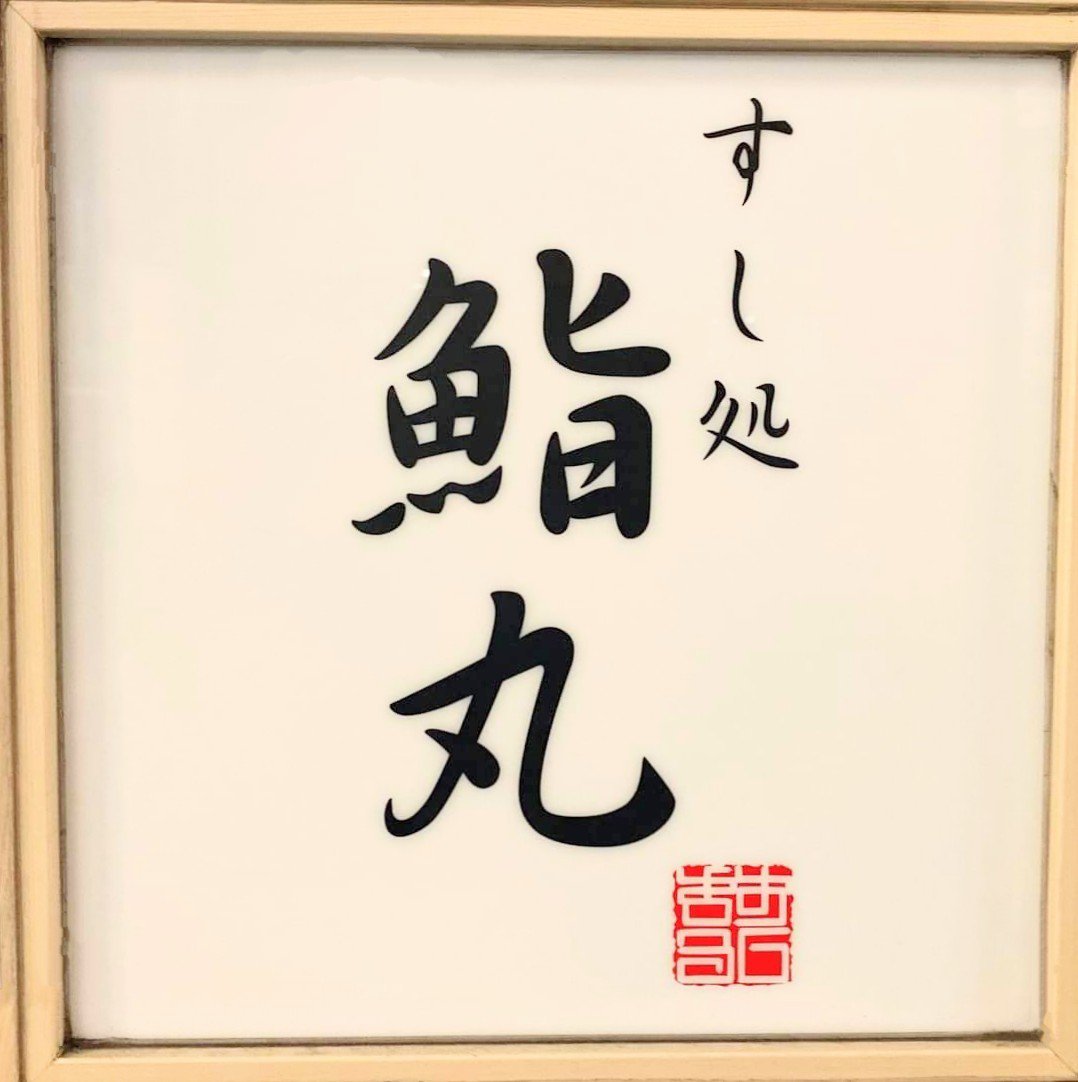 すし処
鮨丸